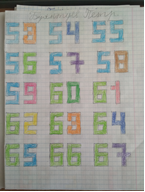 53 54 55
56 57 58
59 60 61
62 63 64
65 66 67